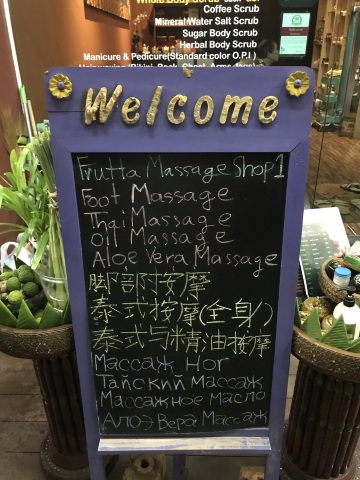 Whole Body Scrub
Coffee Scrub
Mineral Water Salt Scrub
Sugar Body Scrub
Herbal Body Scrub
Manicure & Pedicure(Standard color O.P.I)
Welcome
Frutta Massage Shop 1
Foot Massage
Thai Massage
Oil Massage
Aloe Vera Massage
脚部按摩
泰式按摩(全身)
泰式与精油按摩
Массаж Ног
Тайский массаж
Массажное масло
Алоэ Вера Массаж